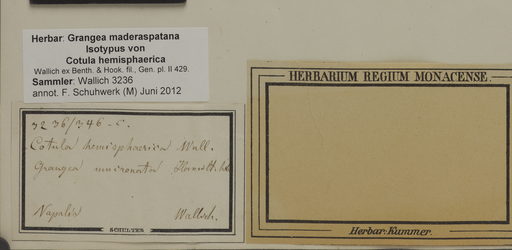 Herbar: Grangea maderaspatana
Isotypus von
Cotula hemisphaerica
Wallich ex Benth. & Hook. fil., Gen. pl. II 429.
Sammler: Wallich 3236
annot. F. Schuhwerk (M) Juni 2012
3236/346-c.
Cotula hemisphaerica Wall.
Grangea mucronata
Napalia Wallich.
SCHULTES
HERBARIUM REGIUM MONACENSE.
Herbar. Kummer.